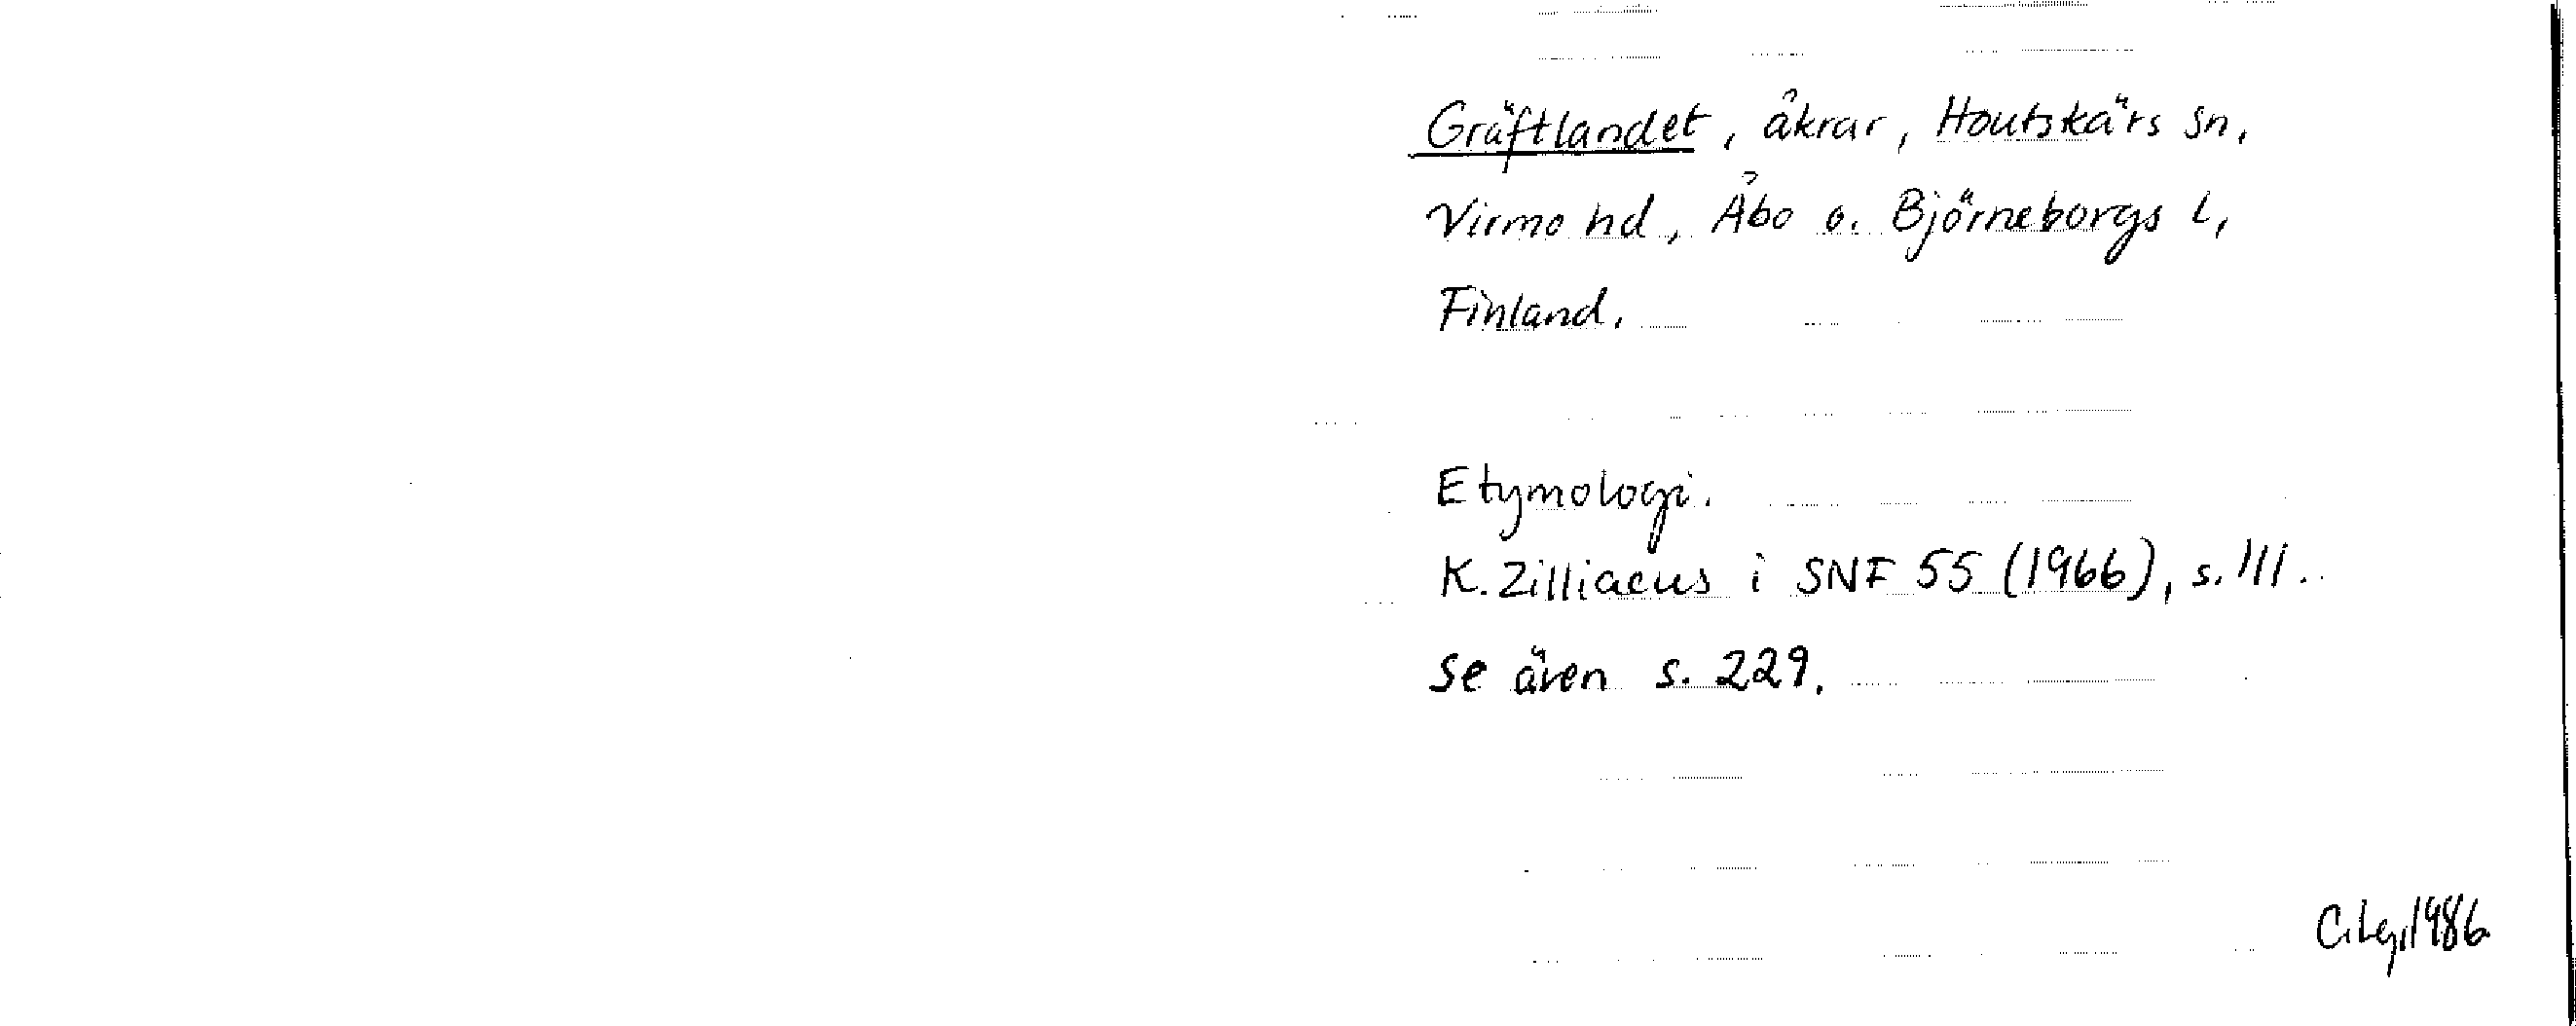 Gräftlandet, åkrar, Houtskärs sn,
Virmo hd, Åbo o. Björneborgs l,
Finland.
Etymologi.
K. Zilliacus i SNF 55 (1966), s. 111.
Se även s. 229.
C.Lg, 1986